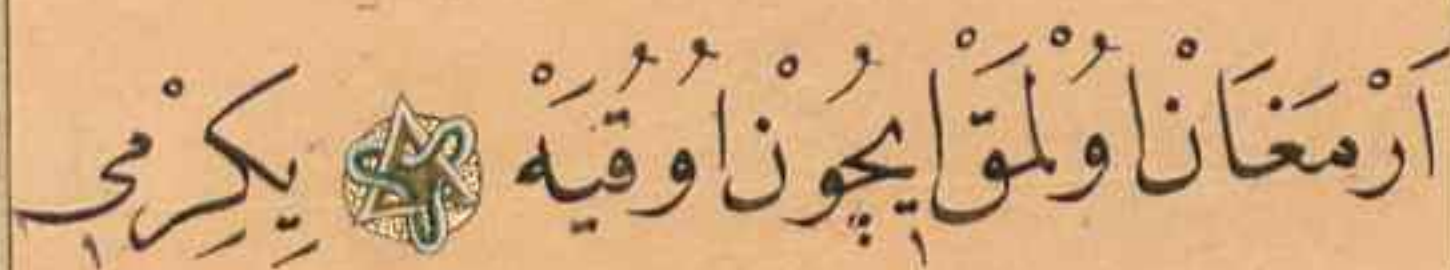 اَرْمَغَانْ اُولْمَقْ اِيچُونْ اُوقُيَهْ ۞ يِكِرْمِى